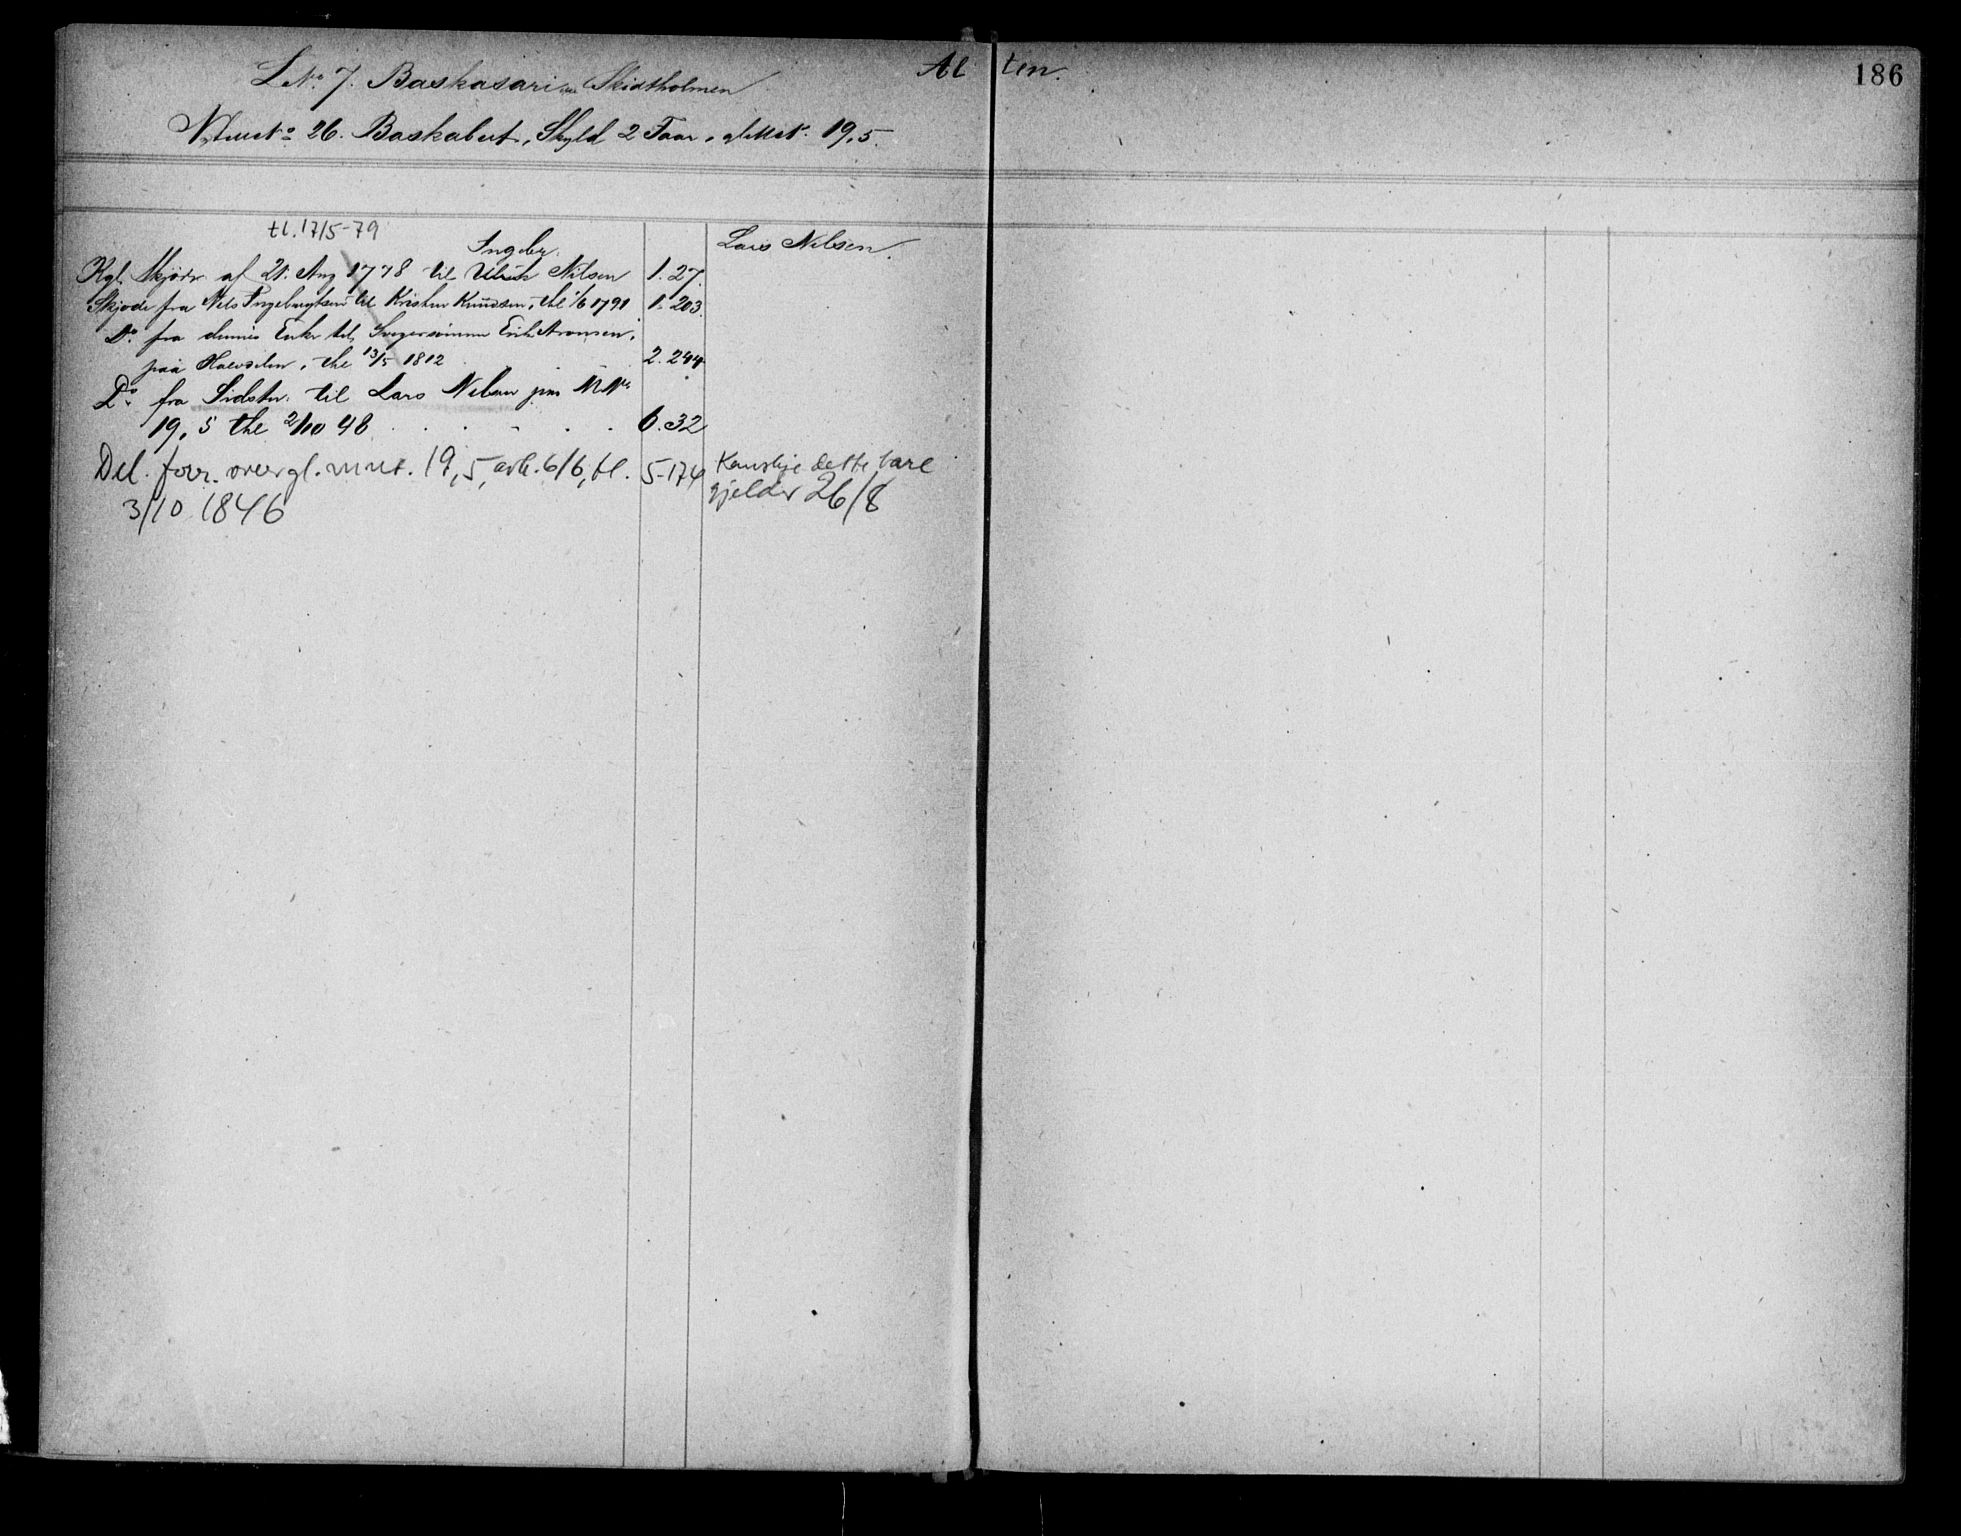 Al ten.
186
L.No. 7. Baskasari Skidtholmen
No 26. Baskabut, Skyld 2 Faar, glMatr. 19,5.
tl. 17/5-79
Ingebr.
Lars Nilsen.
Kgl. Skjöde af 21. Aug 1778 til Ulrich Nilsen 1.27.
Skjøde fra Nels Ingebrigtsen til Kristen Knudsen, thl 1/6 1791 1.203.
Do. fra dennes Enke til Svigersønnen Erik Aronsen,
paa Halvdelen, thl 13/5 1812 2.244
Do fra Sidstn. til Lars Nilsen paa MNo
19,5 thl 2/10 48 6.32
Del. forr. over gl. mnr. 19,5, avh. 6/6, tl. 5-174
3/10 1846
Kanskje dette bare
gjelder 26/8